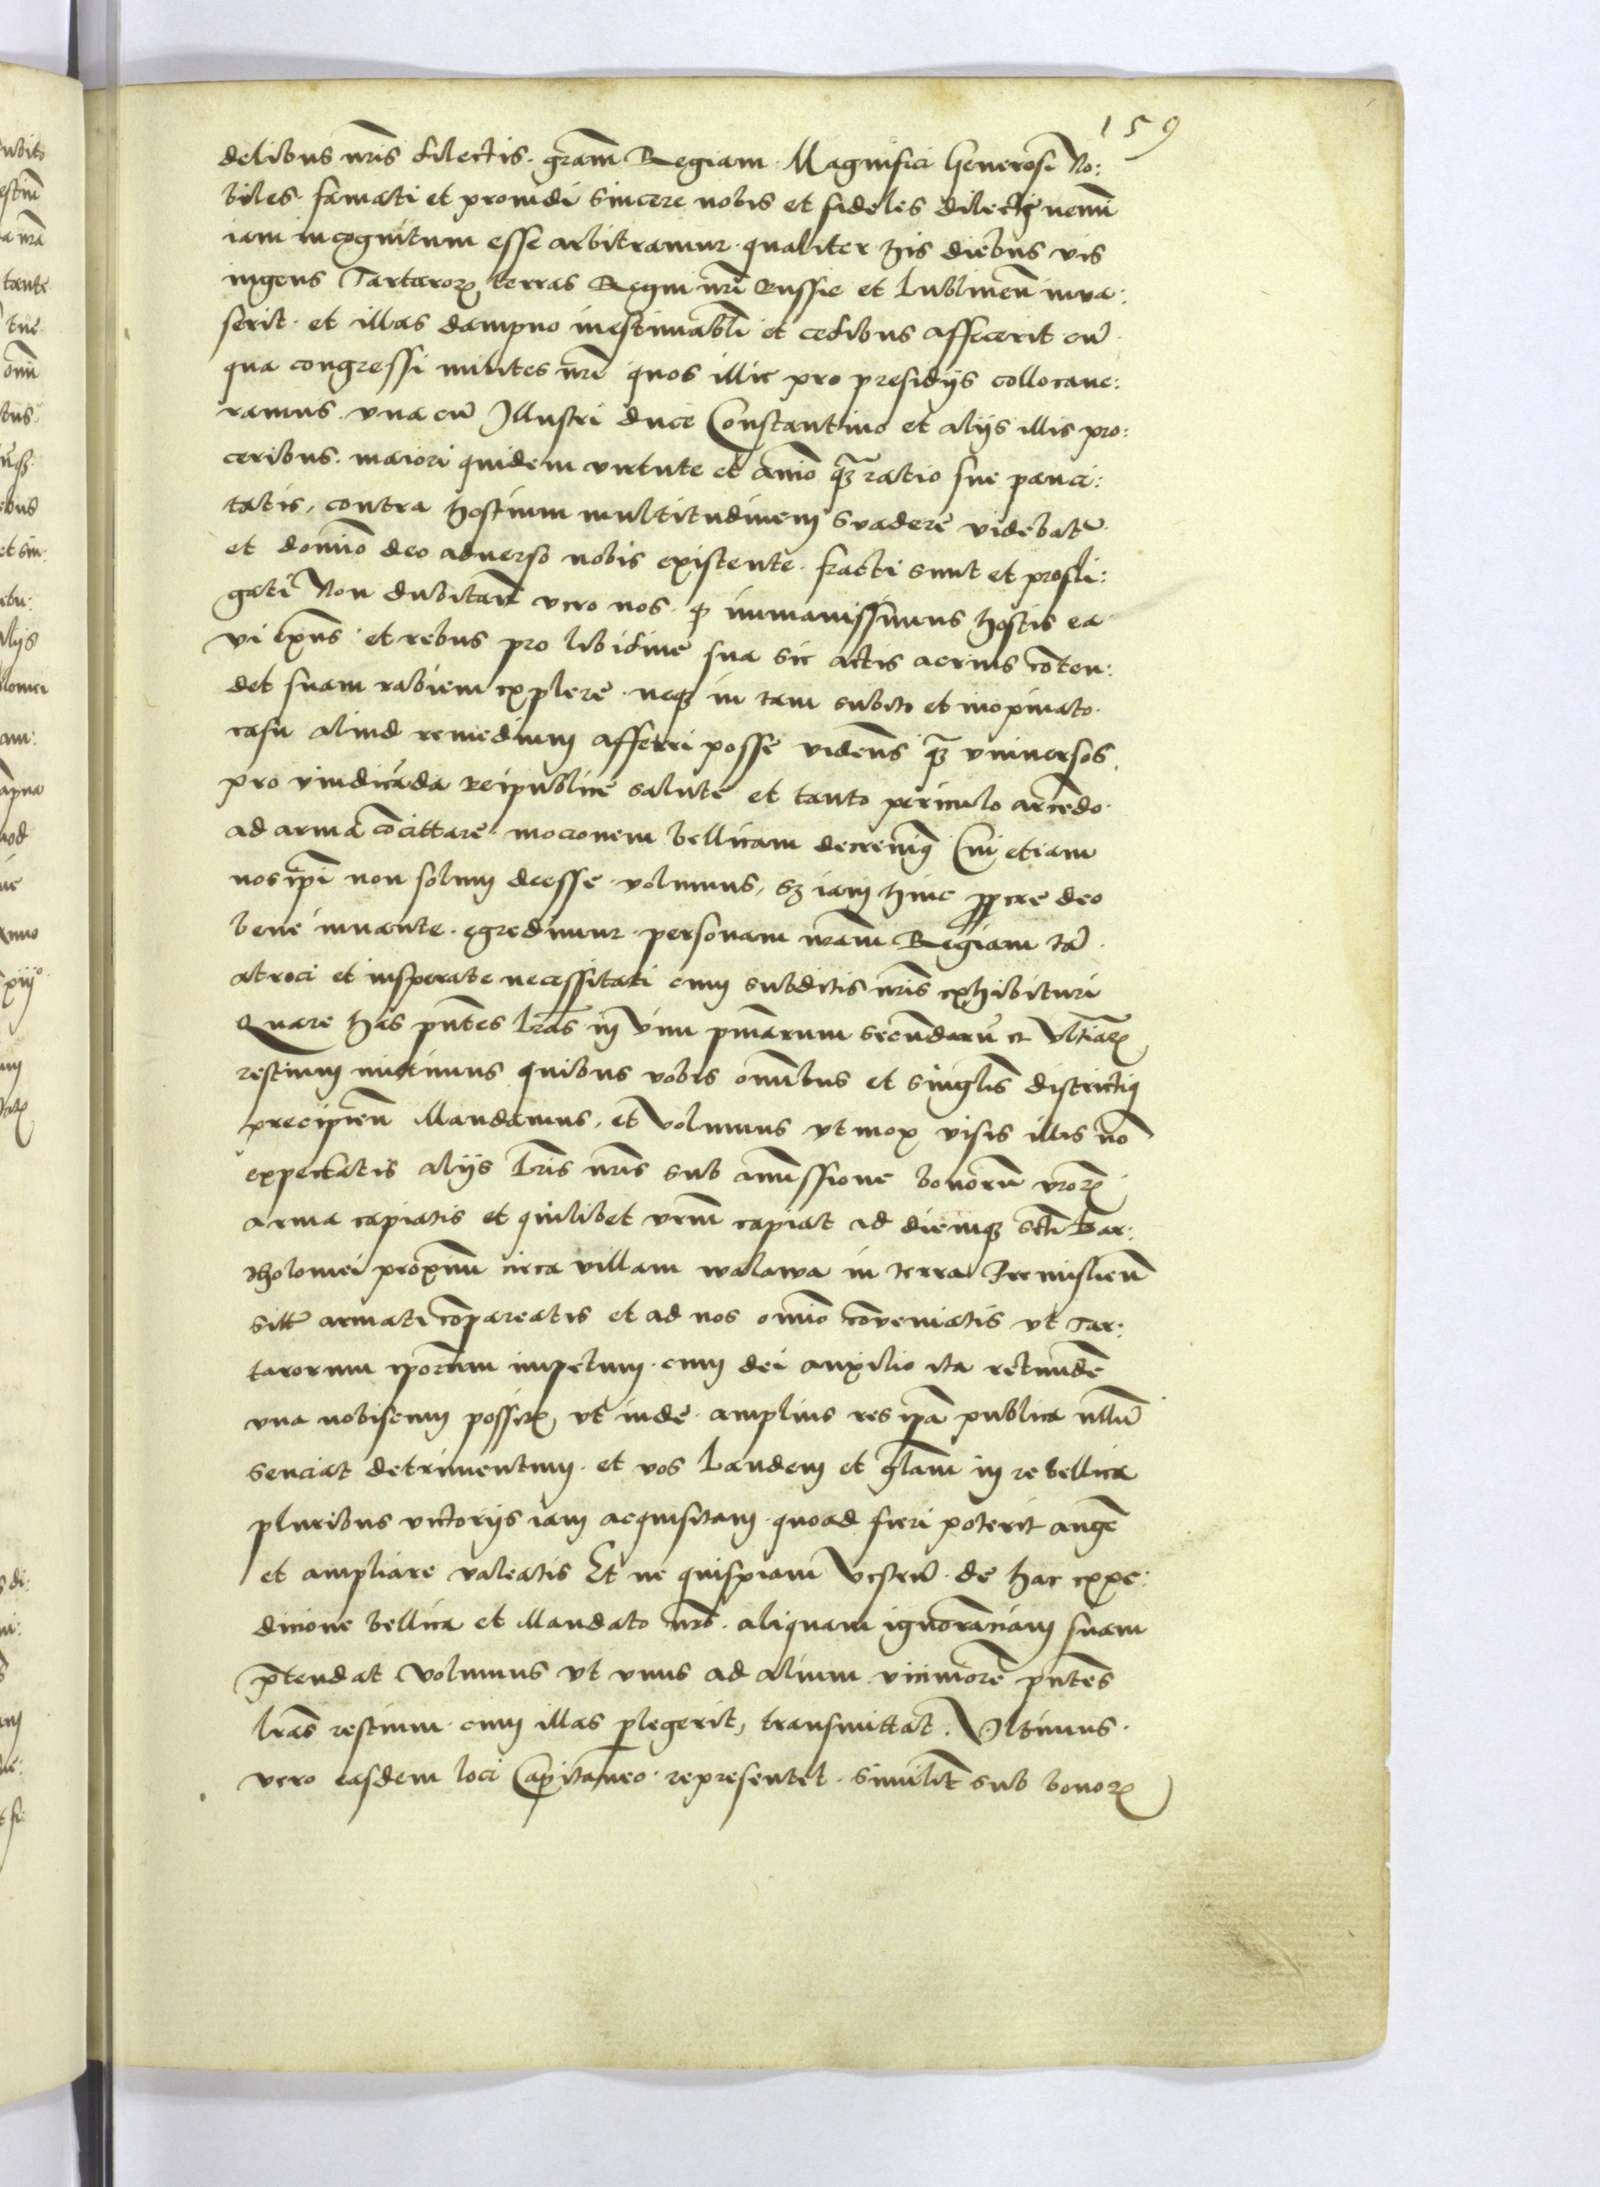 159
delibus nr̃is dilectis. grãm Regiam. Magnifici Generosi No:
biles. famati et prouidi sincere nobis et fideles dilecti nemini
iam incognitum esse arbitramur. qualiter his diebus vis
ingens Tartaroꝝ terras Regni nr̃i Russie et Lublineñ inua:
serit. et illas dampno inestimabli et cedibus affecerit cũ
qua congressi milites nr̃i quos illic pro presidijs collocaue:
ramus. vna cũ Illustri duce Constantino et alijs illis pro:
ceribus. maiori quidem virtute et aĩmo qꝫ ratio sue pauci:
tatis, contra hostium multitudinem suadere videbatr̃
et domĩo deo aduerso nobis existente. fracti sunt et profli:
gati Non dubitañ vero nos. ꝙ immanissimus hostis ea
vi vsus et rebus pro libidine sua sic actis acrius cõten:
det suam rabiem explere. neqꝫ in tam subito et inopinato.
casu aliud remedium afferri posse videñs qꝫ vniuersos
pro vindicãda Reipublice salute et tanto periculo arcẽdo.
ad arma cõcittare. mocionem bellicam decreuimꝰ Cui etiam
nos ip̃i non solum deesse. volumus, sꝫ iam hinc ꝓpere deo
bene iuuante. egredimur. personam nr̃am Regiam tã
atroci et insperate necessitati cum subditis nr̃is exhibituri
Quare has pñtes lr̃as in vim pm̃arum secundarũ et vltiaꝝ
restium mittimus quibus vobis om̃ibus et singlis districtiꝰ
precipieñ Mandamus, et volumus vt mox visis illis nõ
expectatis alijs lr̃is nr̃is sub amissione bonorũ vr̃oꝝ
arma capiatis et quilibet vr̃m capiat ad diemqꝫ scti Bar:
tholomei proximũ circa villam walawa in terra Premislieñ
sitt̃ armati cõpareatis et ad nos om̃io cõueniatis vt Tar:
tarorum ip̃orum impetum. cum dei auxilio ita retundẽ
vna nobiscum possitꝭ, vt inde. amplius res ip̃a publica nllũ
senciat detrimentum. et vos Laudem et glãm in re bellica
pluribus victorijs iam acquisitam. quoad fieri poterit augẽ
et ampliare valeatis Et ne quispiam vestrũ. de hac expe:
dicione bellica et Mandato nr̃o. aliquam ignoranciam suam
p̃tendat volumus vt vnus ad alium viciniorẽ pñtes
lr̃as restium. cum illas plegerit, transmittat. Vltimus.
vero easdem loci Capitaneo. representet. similit̃ sub bonoꝝ